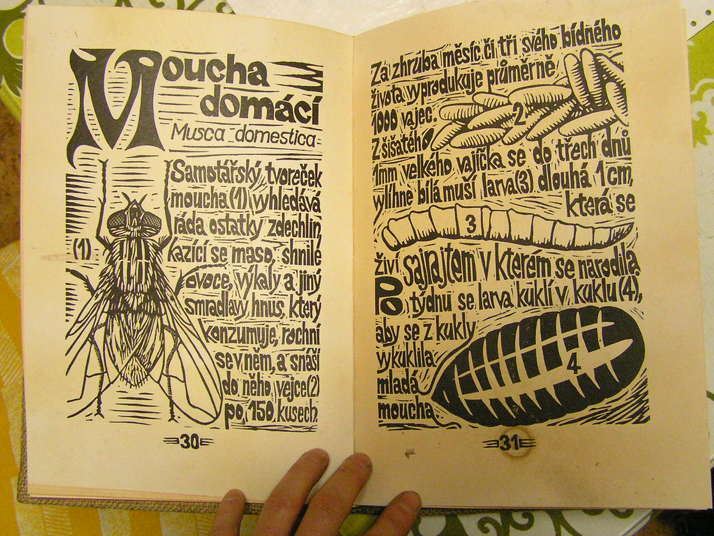 Moucha
domácí
Musca-domestica
Samotářský tvoreček
moucha (1) vyhledává
ráda ostatky zdechlin
kazící se maso, shnilé
ovoce, výkaly a jiný
smradlavý hnus, který
konzumuje, rochní
se v něm, a snáší
do něho vejce (2)
po 150 kusech
(1)
30
Za zhruba měsíc či tři svého bídného
života vyprodukuje průměrně
1000 vajec.
Z šišatého
1mm velkého vajíčka se do třech dnů
vylíhne bílá muší larva (3) dlouhá 1 cm,
která se
2
3
živí sajrajtem v kterém se narodila.
Po týdnu se larva kuklí v kuklu (4),
aby se z kukly
vykuklila
mladá
moucha
4
31